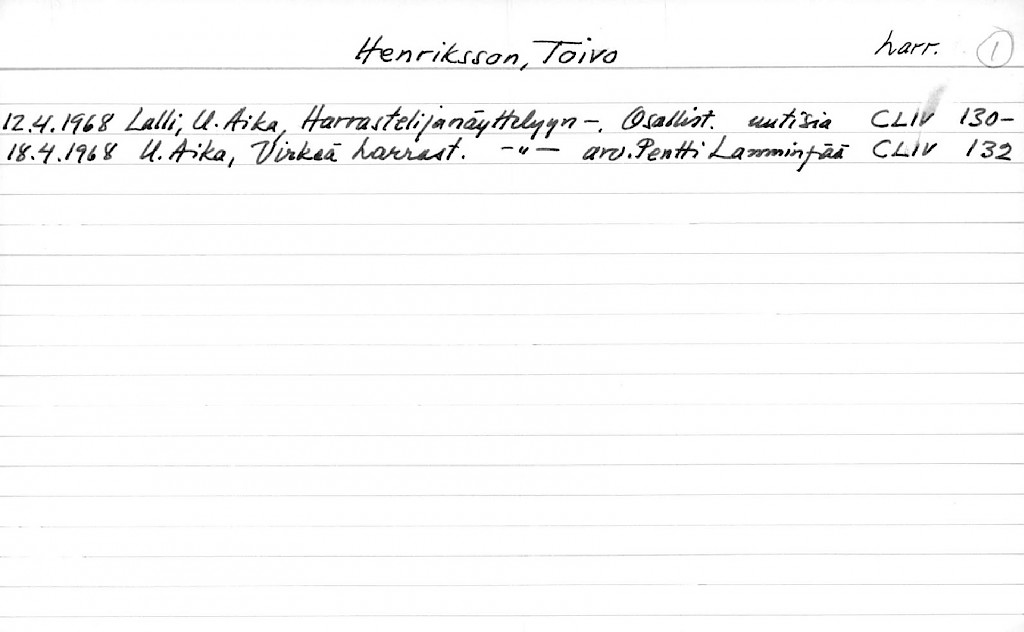 Henriksson, Toivo harr. 1
12.4.1968 Lalli, U. Aika, Harrastelijanäyttelyyn -. Osallist. uutisia CLIV 130-
18.4.1968 U. Aika, Virkeä harrast. -"- arv. Pentti Lamminpää CLIV 132